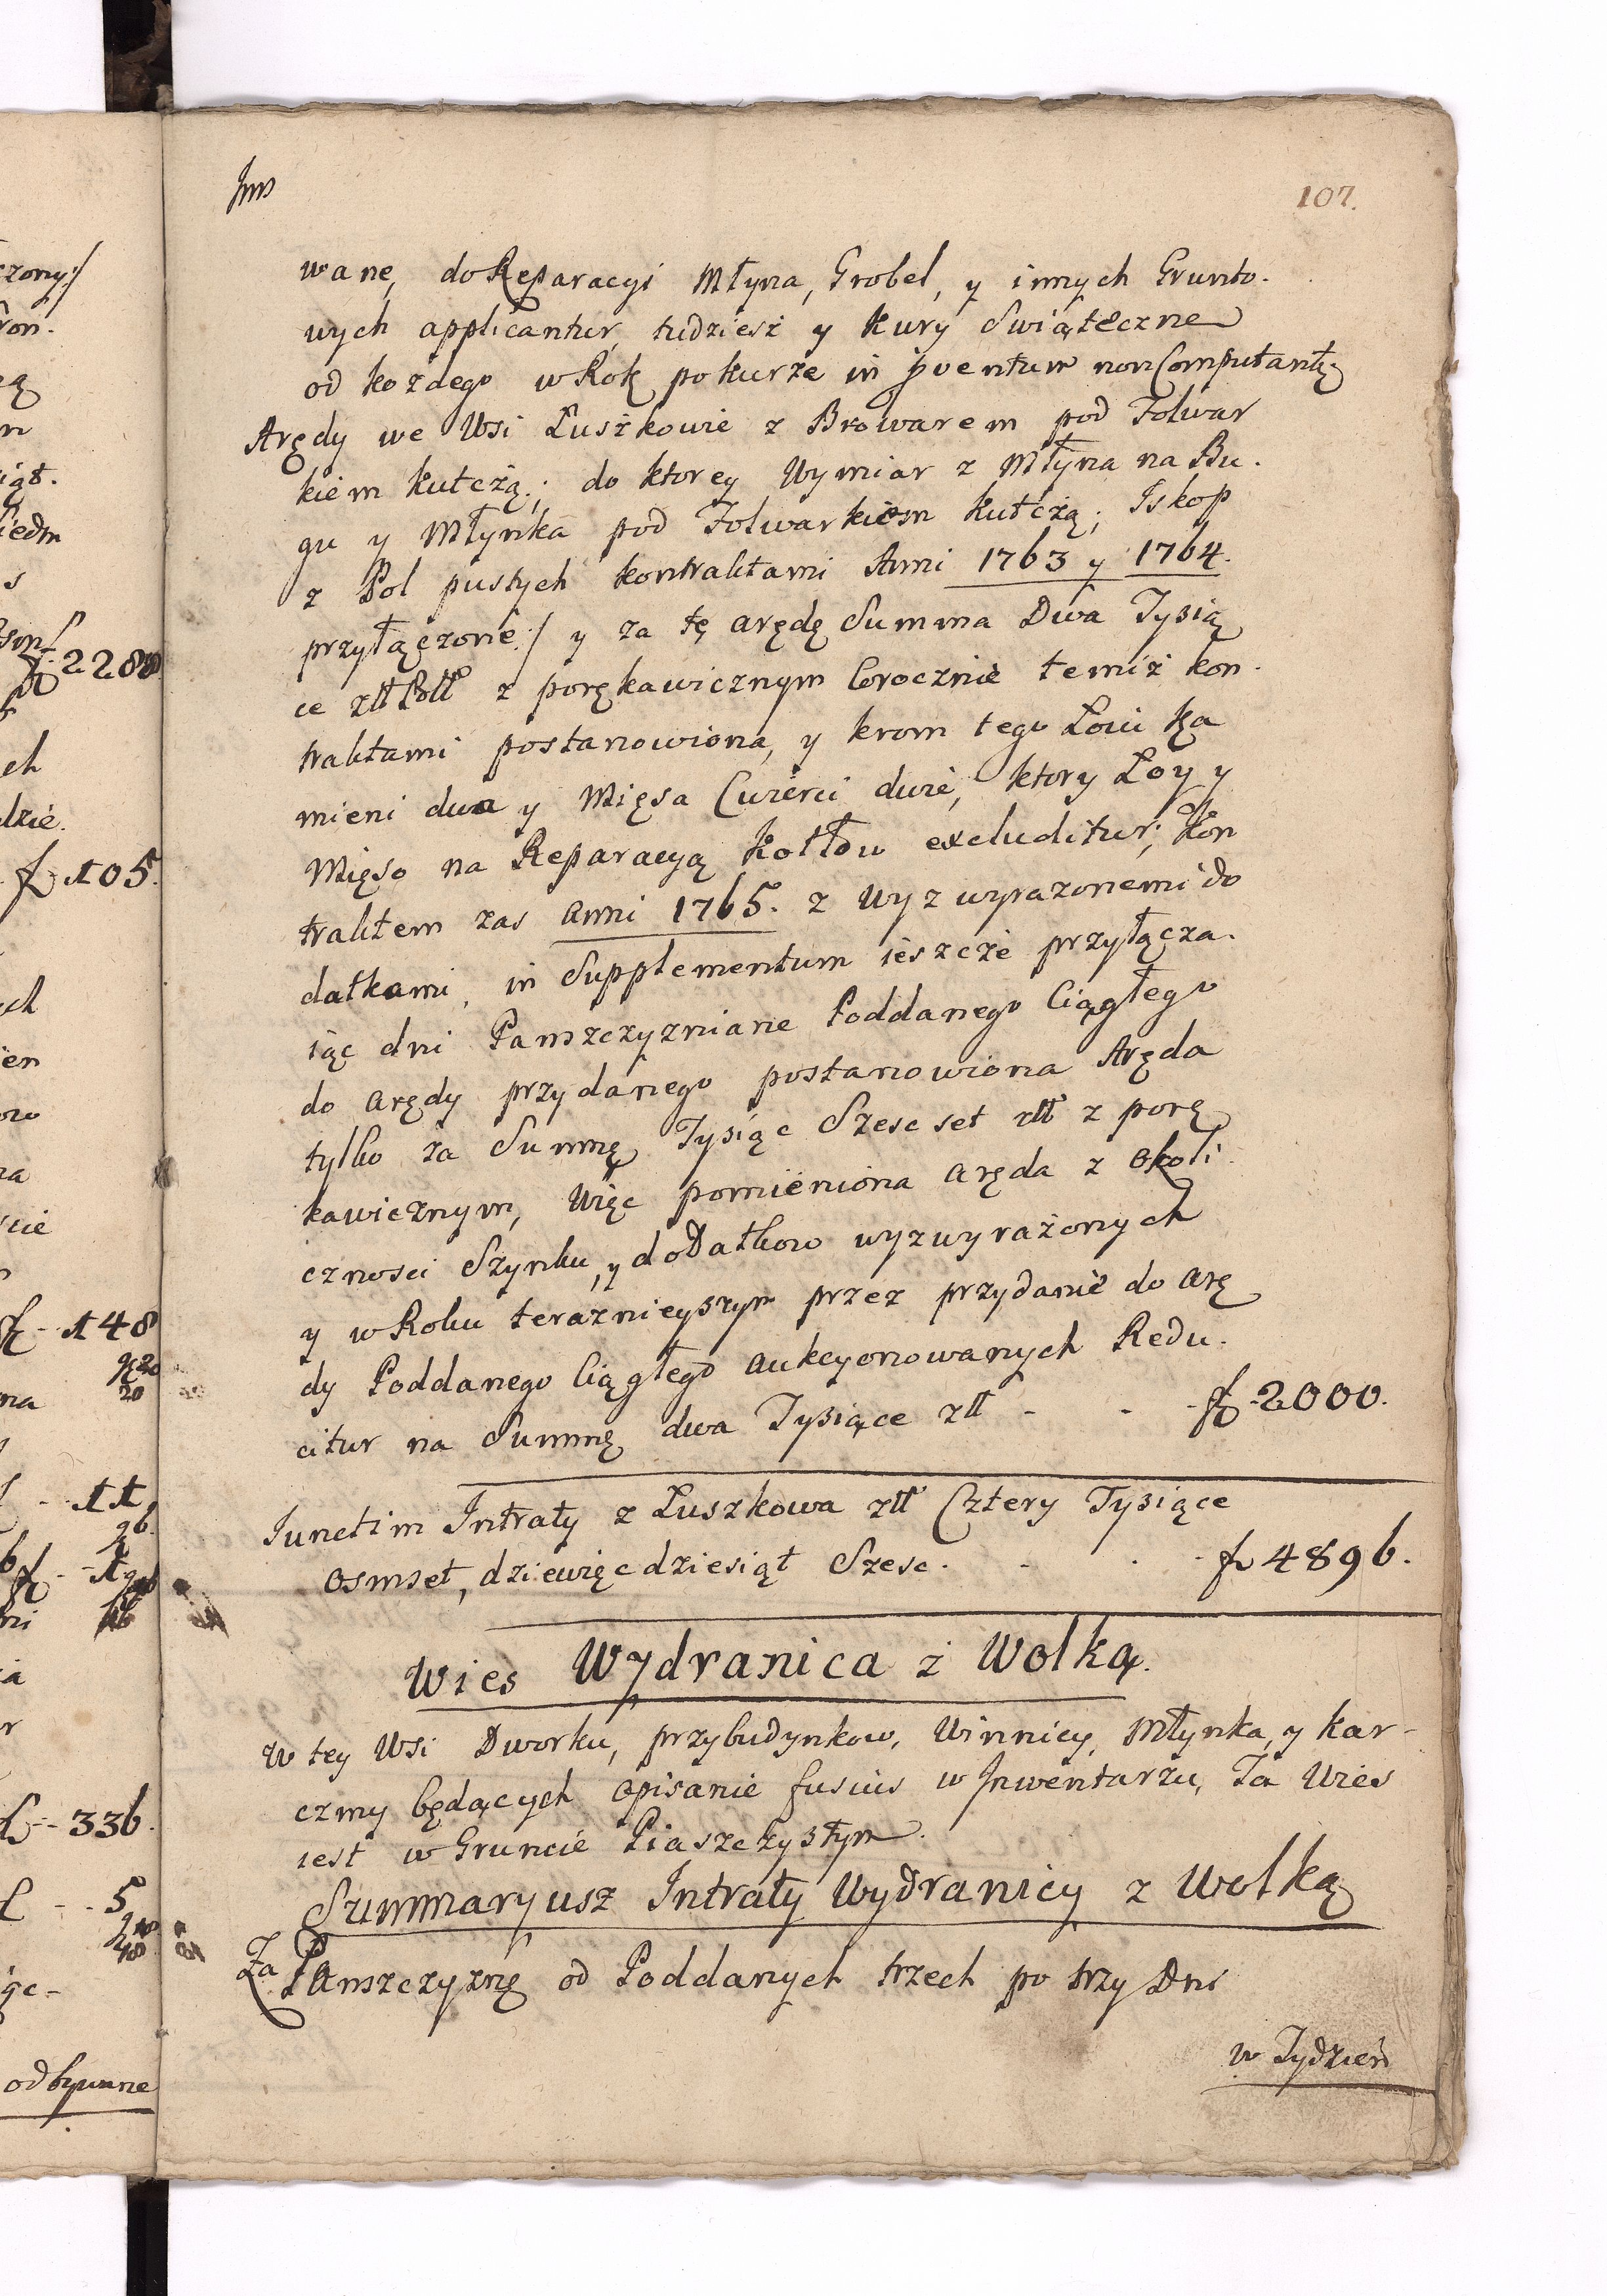 107.
wane, do Reparacyi Młyna, Grobel, y innych Grunto-
wych applicantur, tudziesz y Kury Swiąteczne
od kozdego w Rok po kurze in proventum non Computantur
Arędy we Wsi Łuszkowie z Browarem pod Folwar
kiem kutczą; do ktorey Wymiar z Młyna na Bu-
gu y Młynka pod Folwarkiem Kutczą; Iskop
z Pol pustych kontraktami Anni 1763 y 1764.
przyłączone:/ y za tę arędę Summa Dwa Tysią
ce złł Poll z porękawicznym Corocznie temiż kon-
traktami postanowiona, y krom tego Łoiu ka
mieni dwa y Mięsa Cwierci dwie, ktory Łoy y
Mięso na Reparacyą Kotłow excluditur; Kon
traktem zas anni 1765. z wyz wyrazonemi do
datkami, in Supplementum ieszcze przyłącza-
iąc dni Panszczyzniane Poddanego Ciągłego
do arędy przydanego postanowiona Aręda
tylko za Summę Tysiąc Szesc set złł z porę
kawicznym, Więc pomieniona aręda z okoli-
cznosci Szynku, y dodatkow wyzwyrażonych
y w Roku teraznieyszym przez przydanie do arę
dy Poddanego Ciągłego aukcyonowanych Redu-
citur na Summę dwa Tysiące złł - - - f 2000.
Iunctim Intraty z Łuszkowa złł Cztery Tysiące
osmset, dziewięcdziesiąt Szesc. - - - f 4896.
Wies Wydranica z Wolką.
w tey Wsi Dworku, przybudynkow, Winnicy, Młynka, y Kar-
czmy będących opisanie fusius w Inwentarzu, Ta Wies
iest w Gruncie Piaszczystym.
Summaryusz Intraty Wydranicy z Wolką
Za Panszczyznę od Poddanych trzech po trzy Dni
w Tydzień
f 2288
f 105.
f - 148
- 11
f - 1
- 336.
- - 5
odbywane